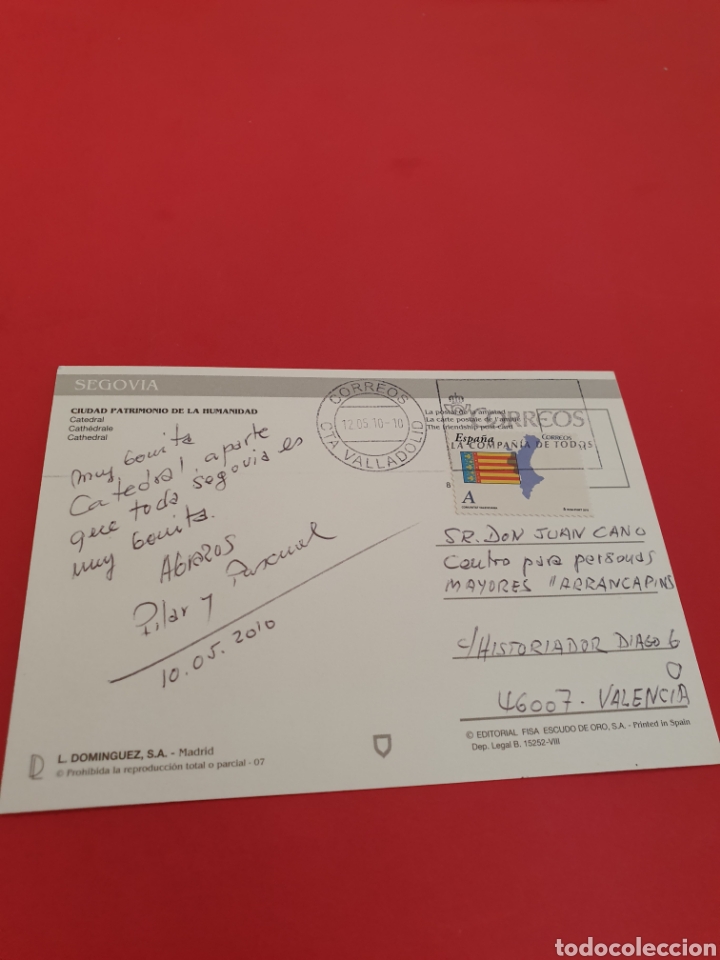 SEGOVIA
CIUDAD PATRIMONIO DE LA HUMANIDAD
Catedral
Cathédrale
Cathedral
muy bonita
Catedral aparte
que toda segovia es
muy bonita.
ABRAZOS
Pilar y Pascual
10.05.2010
CORREOS
12.05.10-10
CTA VALLADOLID
La postal de la amistad
La carte postale de l'amitié
The friendship post card
CORREOS
LA COMPAÑIA DE TODOS
España
CORREOS
A
SR. DON JUAN CANO
Centro para personas
MAYORES "ARRANCAPINS
C/HISTORIADOR DIAGO 6
46007. VALENCIA
L. DOMINGUEZ, S.A. - Madrid
© Prohibida la reproducción total o parcial - 07
© EDITORIAL FISA ESCUDO DE ORO, S.A. - Printed in Spain
Dep. Legal B. 15252-VIII
todocoleccion